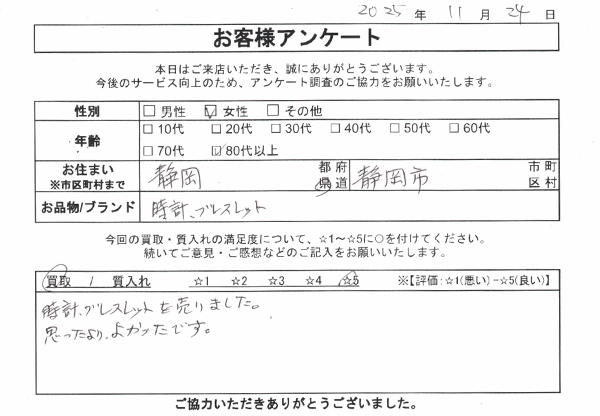 2025 年 11 月 24 日
お客様アンケート
本日はご来店いただき、誠にありがとうございます。
今後のサービス向上のため、アンケート調査のご協力をお願いいたします。
性別 □ 男性 ☑ 女性 □ その他
年齢 □ 10代 □ 20代 □ 30代 □ 40代 □ 50代 □ 60代
□ 70代 ☑ 80代以上
お住まい ※市区町村まで 静岡 都 府 県 道 静岡市 市 町 区 村
お品物/ブランド 時計、ブレスレット
今回の買取・質入れの満足度について、☆1～☆5に○を付けてください。
続いてご意見・ご感想などのご記入をお願いいたします。
買取 / 質入れ ☆1 ☆2 ☆3 ☆4 ☆5 ※【評価:☆1(悪い)－☆5(良い)】
時計、ブレスレットを売りました。
思ったより、よかったです。
ご協力いただきありがとうございました。